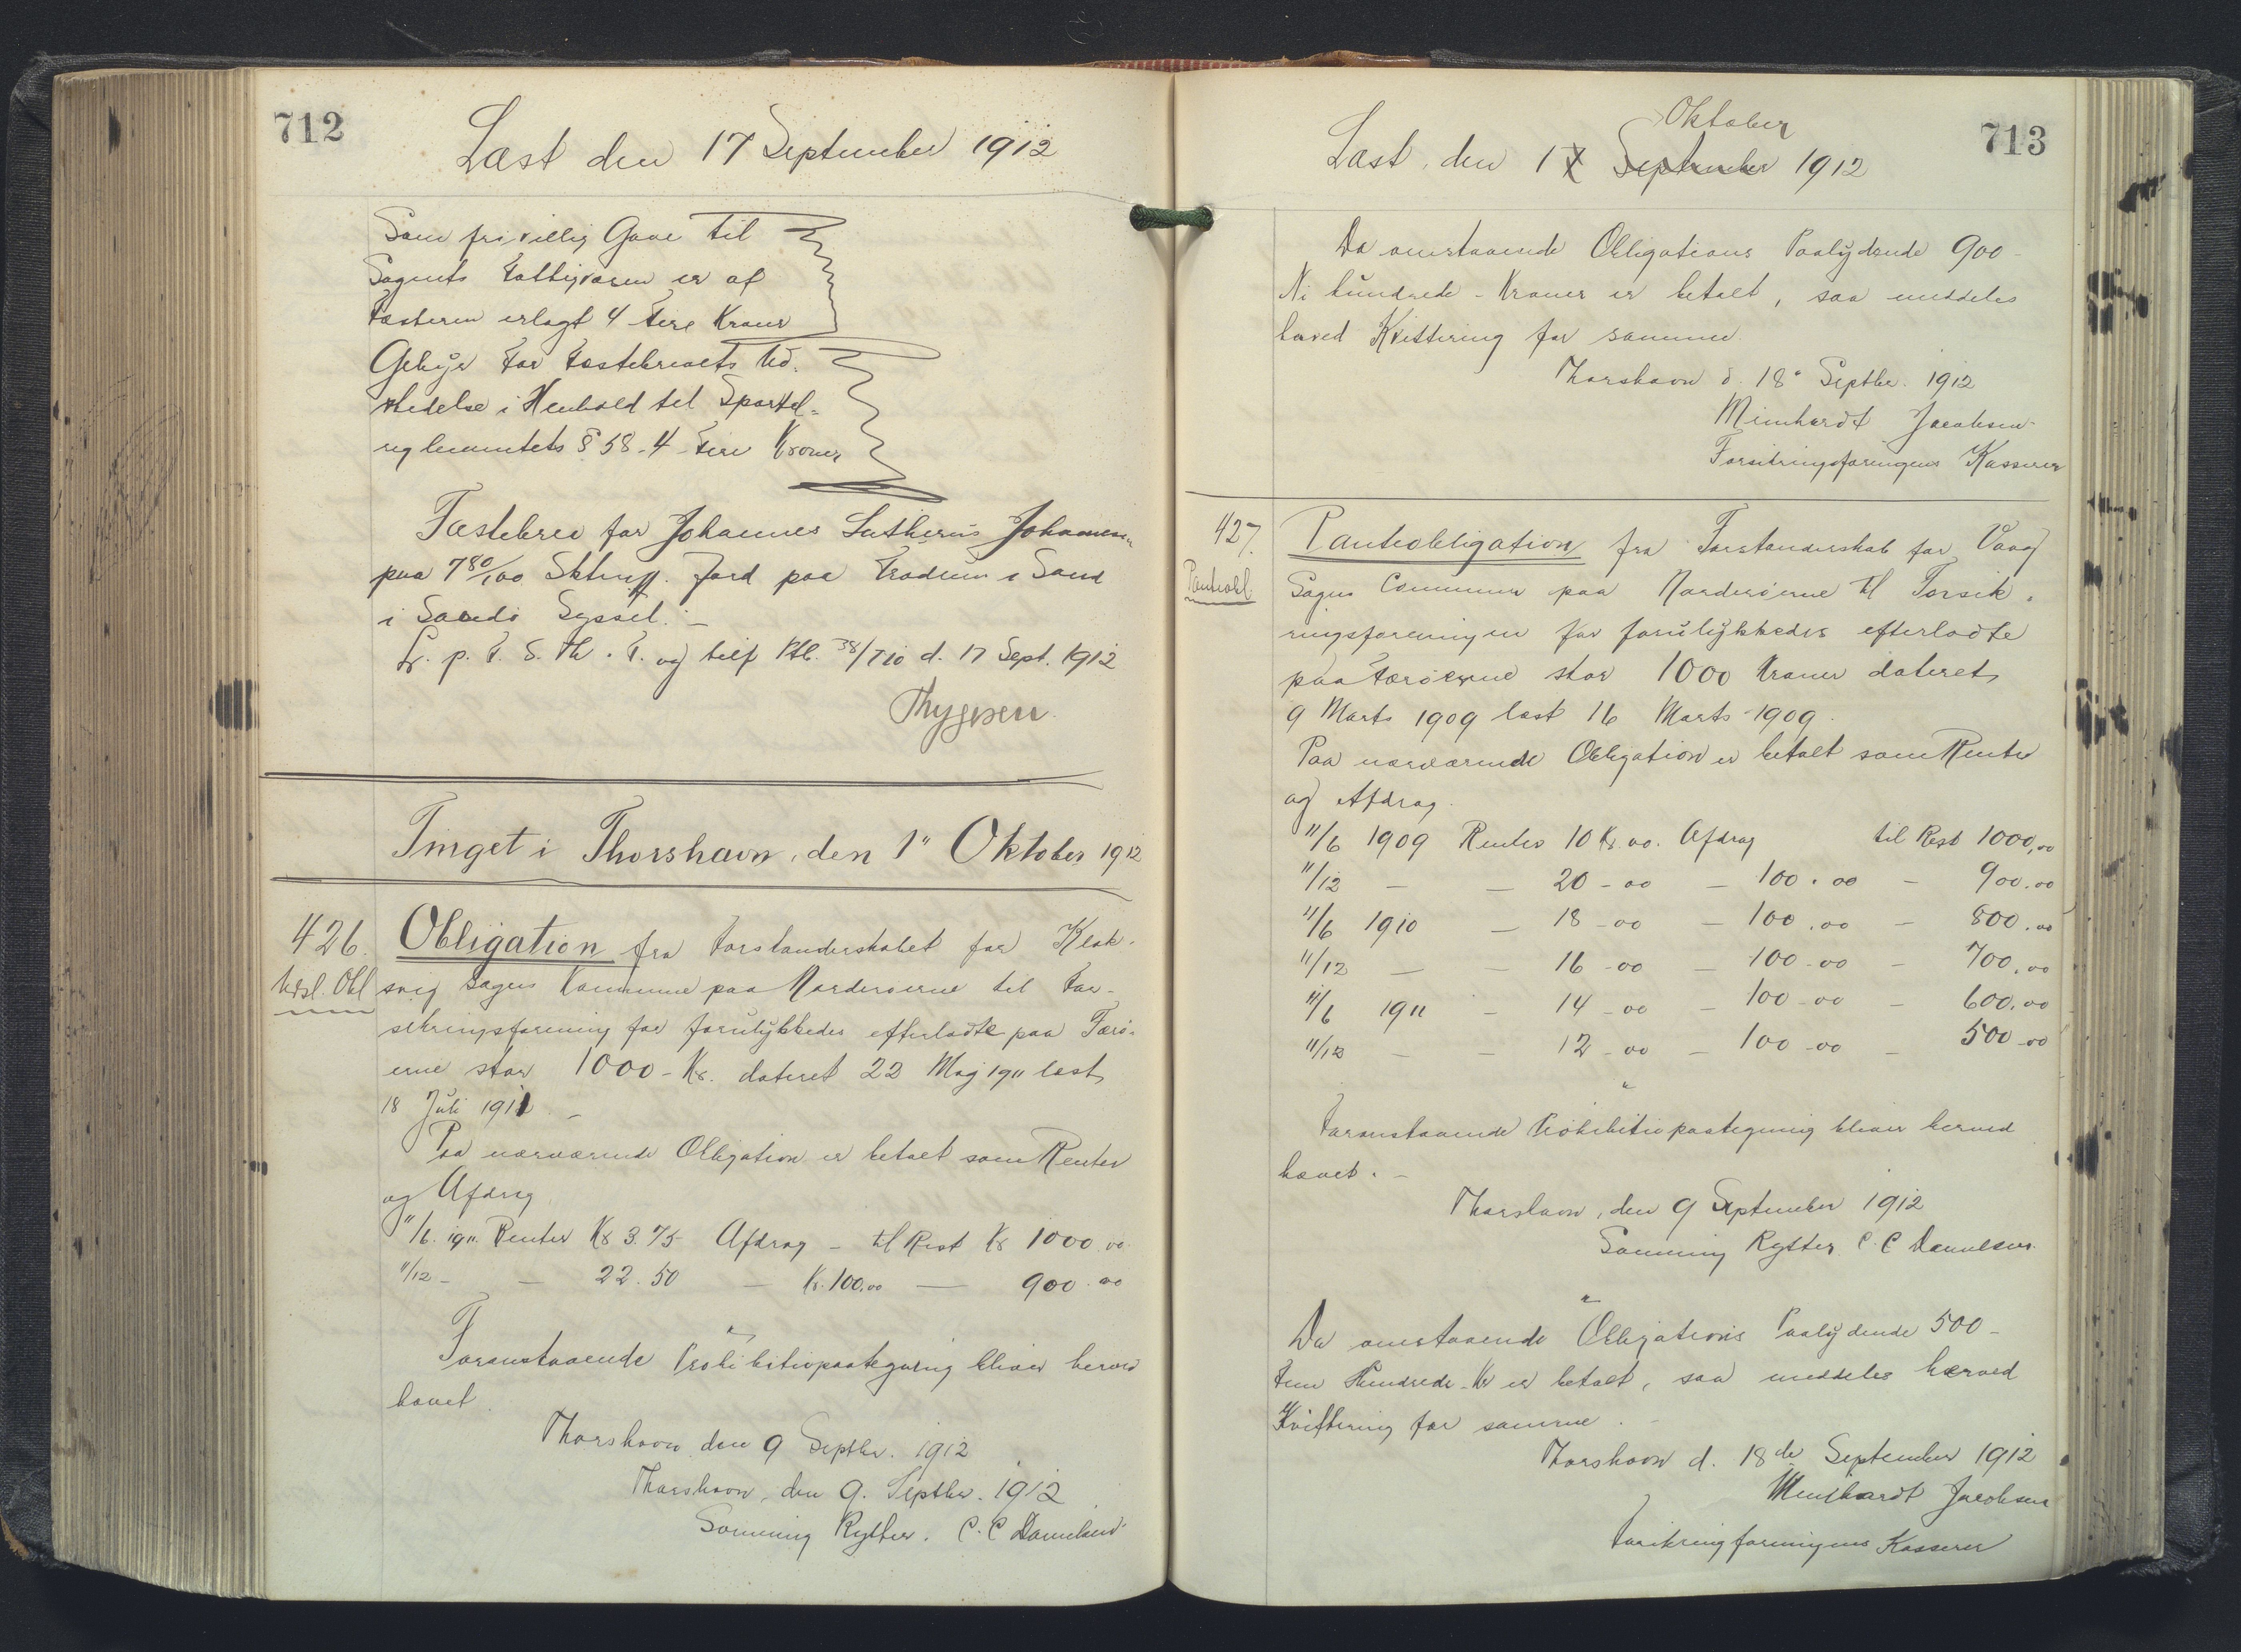 712
Læst den 17 September 1912
Som frivillig Gave til
Sognets Fattigvæsen er af
Fæsteren erlagt 4 fire Kroner
Gebyr for Fæstebrevets Ud-
stedelse i Henhold til Sportel-
reglementets § 58 - 4 - Fire Kroner
Fæstebrev for Johannes Lutherus Johannesen
paa 7 80/100 Jord paa Trøðum i Sand
i Sandø Syssel. -
Lr. p. F. S. Th. T. og tilf Ptb. 38/710 d. 17 Sept. 1912
Thygesen.
Tinget i Thorshavn, den 1" Oktober 1912
426. Obligation fra Forstanderskabet for Klak-
Udsl. Obl
svig Sogns Kommune paa Norderøerne til For-
sikringsforening for forulykkedes efterladte paa Færø-
erne stor 1000 - Kr. dateret 22 Maj 1911 læst
18 Juli 1911. -
Paa nærværende Obligation er betalt som Renter
og Afdrag
11/6. 1911. Renter Kr 3.75 Afdrag - til Rest Kr 1000.00
11/12 - - 22.50 - Kr. 100.00 - 900.00
"
Foranstaaende Prohibitivpaategning bliver herved
hævet.
Thorshavn den 9 Septbr. 1912
Thorshavn, den 9. Septbr. 1912
Sonning Rytter. C. C Danielsen
713
Oktober
Læst den 17 September 1912
Da omstaaende Obligations Paalydende 900 -
Ni hundrede - Kroner er betalt, saa meddeles
herved Kvittering for samme.
Thorshavn d. 18' Septbr. 1912
Meinhardt Jacobsen
Forsikringsforeningens Kasserer
427. Panteobligation fra Forstanderskab for Vaag
Panteobl.
Sogns Commune paa Norderøerne til Forsik-
ringsforeningen for forulykkedes efterladte
paa Færøerne stor 1000 Kroner dateret
9 Marts 1909 læst 16 Marts 1909.
Paa nærværende Obligation er betalt som Renter
og Afdrag.
11/6 1909 Renter 10 Kr. 00. Afdrag til Rest 1000,00
11/12 - - 20 - 00 - 100.00 - 900.00
11/6 1910 - 18 - 00 - 100.00 - 800.00
11/12 - - 16 - 00 - 100 - 00 - 700.00
11/6 1911 - 14 - 00 - 100 - 00 - 600.00
11/12 - - 12 - 00 - 100 - 00 - 500 - 00
"
Foranstaaende Prohibitivpaategning bliver herved
hævet. -
Thorshavn, den 9 September 1912
Sonning Rytter C. C Danielsen.
"
Da omstaaende Obligations Paalydende 500 -
Fem Hundrede - Kr er betalt, saa meddeles herved
Kvittering for samme. -
Thorshavn d. 18de September 1912
Meinhardt Jacobsen
Forsikringforeningens Kasserer